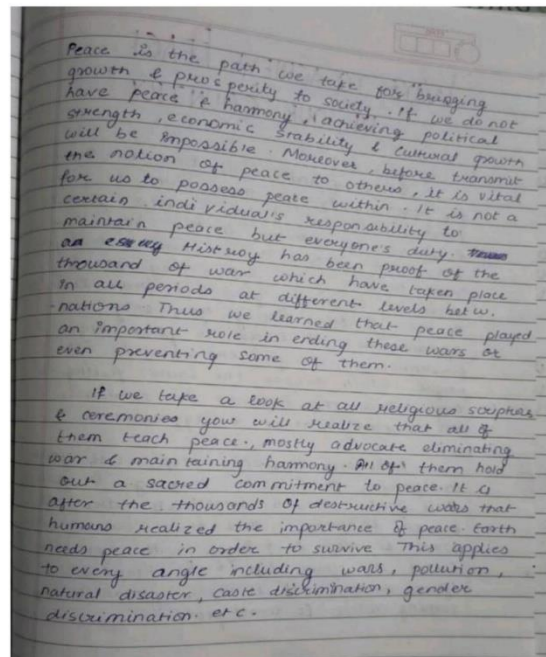 Peace is the path we take for bringing
growth & prosperity to society. If we do not
have peace & harmony, achieving political
strength, economic stability & cultural growth
will be impossible. Moreover, before transmit
the notion of peace to others, it is vital
for us to possess peace within. It is not a
certain individual's responsibility to
maintain peace but everyone's duty.
Histroy has been proof of the
thousand of war which have taken place
in all periods at different levels betw.
nations Thus we learned that peace played
an important role in ending these wars or
even preventing some of them.
If we take a look at all religious scriptures
& ceremonies you will realize that all of
them teach peace., mostly advocate eliminating
war & maintaining harmony. All of them hold
out a sacred commitment to peace. It is
after the thousands of destructive wars that
humans realized the importance of peace. Earth
needs peace in order to survive This applies
to every angle including wars, pollution,
natural disaster, caste discrimination, gender
discrimination. etc.